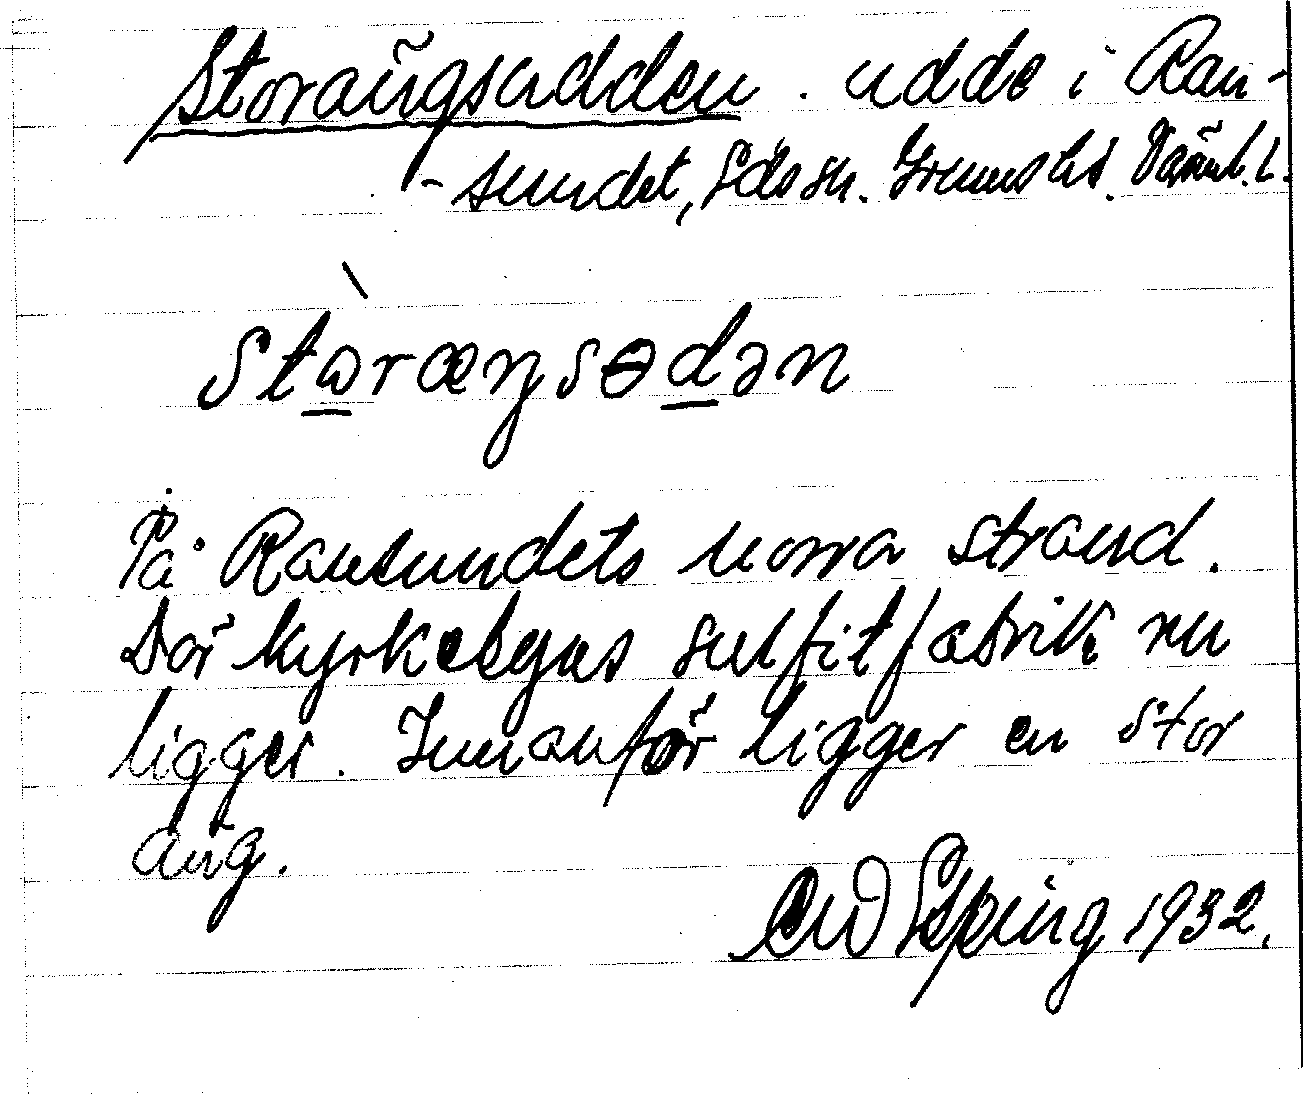 Storängsudden. udde i Ran-
-sundet, Eds sn. Grums hd. Värml. l.
stωræŋsɵdən
På Ransundets norra strand.
Där kyrkebyns sulfitfabrik nu
ligger. Innanför ligger en stor
äng.
1932.